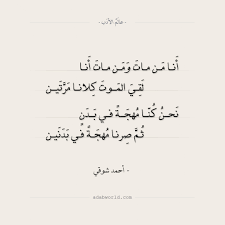 - عالم الأدب -
أَنا مَن ماتَ وَمَن ماتَ أَنا
لَقِيَ المَوتَ كِلانا مَرَّتَين
نَحنُ كُنّا مُهجَةً في بَدَنٍ
ثُمَّ صِرنا مُهجَةً في بَدَنَين
- أحمد شوقي